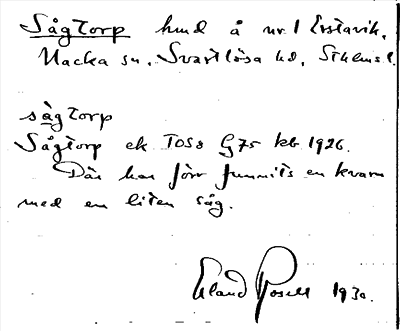 Sågtorp hmd å nr 1 Erstavik,
Nacka sn, Svartlösa hd, Sthlms l.
sågtorp
Sågtorp ek T058 G75 kb 1926.
Där har förr funnits en kvarn
med en liten såg.
Erland Rosell 1930.